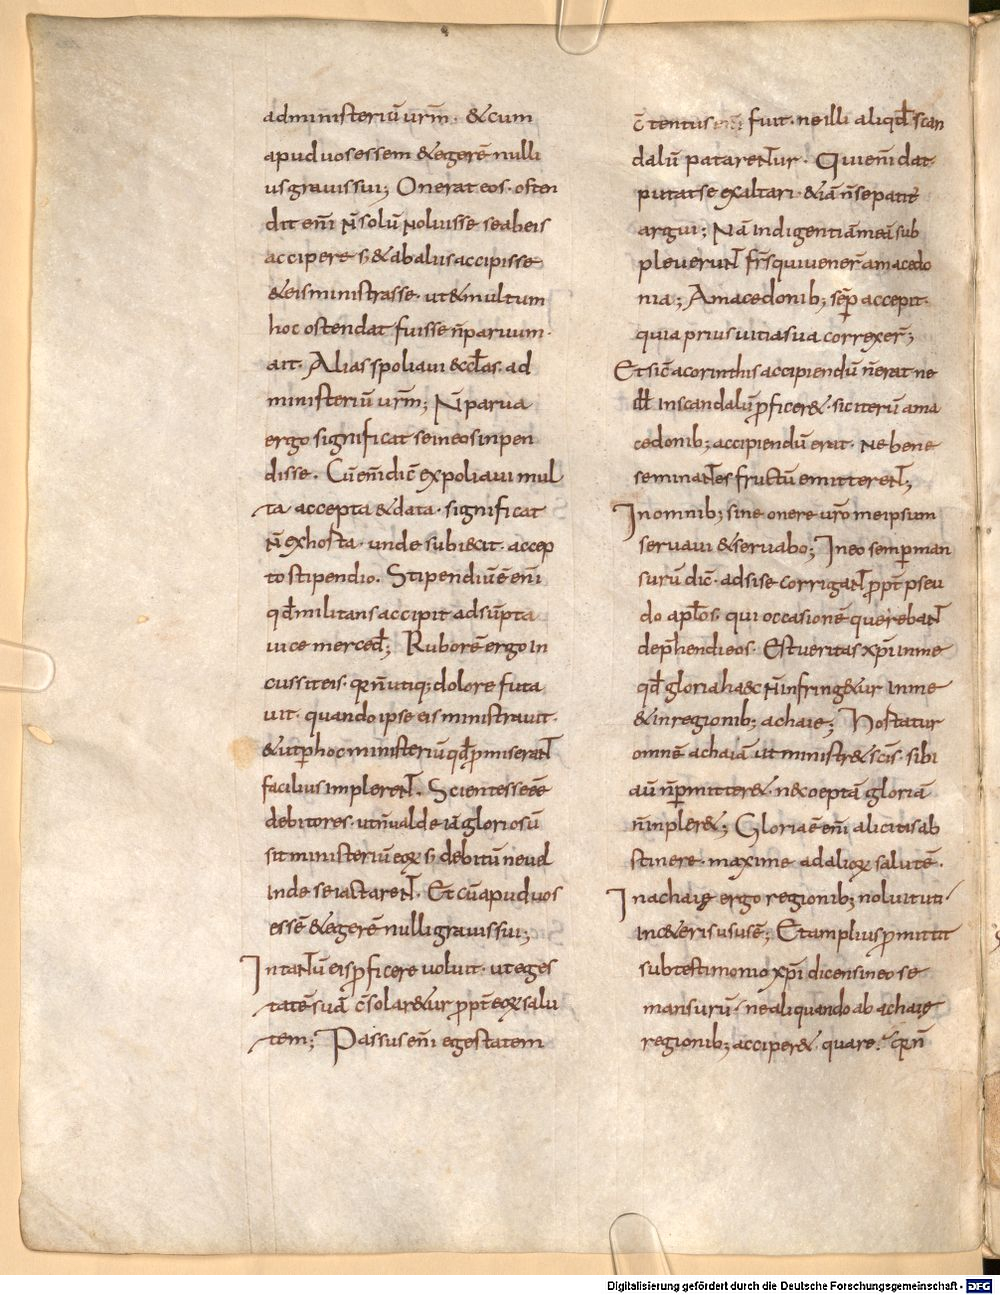 administeriū urm̄. & cum
apud uos essem & egerē nulli
us grauis sui; Onerat eos. osten
dit enī n̄ solū noluisse se ab eis
accipere s; & ab alus accipisse
& eis ministrasse. ut & multum
hoc ostendat fuisse n̄ paruum.
ait. Alias spoliaui eccl̄as. ad
ministeriū urm̄; N̄ parua
ergo significat se in eos inpen
disse. Cū enī dic̄ expoliaui mul
ta accepta & data. significat
n̄ ex hosta. unde subiecit. accep
to stipendio. Stipendiū ē enī
qđ militans accipit adsūpta
uice merceđ; Ruborē ergo in
cussit eis. qm̄ n̄ utiq; dolore futa
uit. quando ipse eis ministrauit.
& ut p hoc ministeriū qđ pmiserant
facilius implerent. Scientes se eē
debitores. ut n̄ ualde iā gloriosū
sit ministeriū eoꝝ s; debitū ne uel
inde se iactarent. Et cū apud uos
essē & egerē nulli grauis sui;
In tantū eis ꝓficere uoluit. ut eges
tatē suā c̄solaretur ꝓpt̄ eoꝝ salu
tem; Passus enī egestatem
c̄tentus fuit. ne illi aliqđ scan
dalū paterentur. Qui enī dat
putat se exaltari. & iā n̄ se patit̄
argui; Nā indigentiā meā sub
pleuerunt fr̄s qui uener̄ a macedo
nia; A macedonib; sēp accepit.
quia prius uitia sua correxer̄;
Et sic̄ a corinthis accipiendū n̄ erat ne
illi in scandalū ꝓficer&. sic iterū a ma
cedonib; accipiendū erat. ne bene
seminantes fructū emitterent;
In omnib; sine onere uro me ipsum
seruaui & seruabo; In eo semp man
surū dic̄. ad si se corrigant ꝓpt̄ pseu
do aplōs. qui occasionē querebant
dep̄hendi eos. Est ueritas xp̄i in me
qđ gloria haec n̄ infring&ur in me
& in regionib; achaie; Hostatur
omnē achaiā ut ministr& scīs. sibi
aū n̄ pmitter&. nec oeptā gloriā
n̄ inpler&; Gloria ē enī a licitis ab
stinere. maxime ad alioꝝ salutē.
In achaię ergo regionib; noluit uti
inc&eris usus ē; Et amplius ꝓmittit
sub testimonio xp̄i dicens in eo se
mansurū. ne aliquando ab achaię
regionib; acciper&. quare? qm̄ n̄
Digitalisierung gefördert durch die Deutsche Forschungsgemeinschaft - DFG